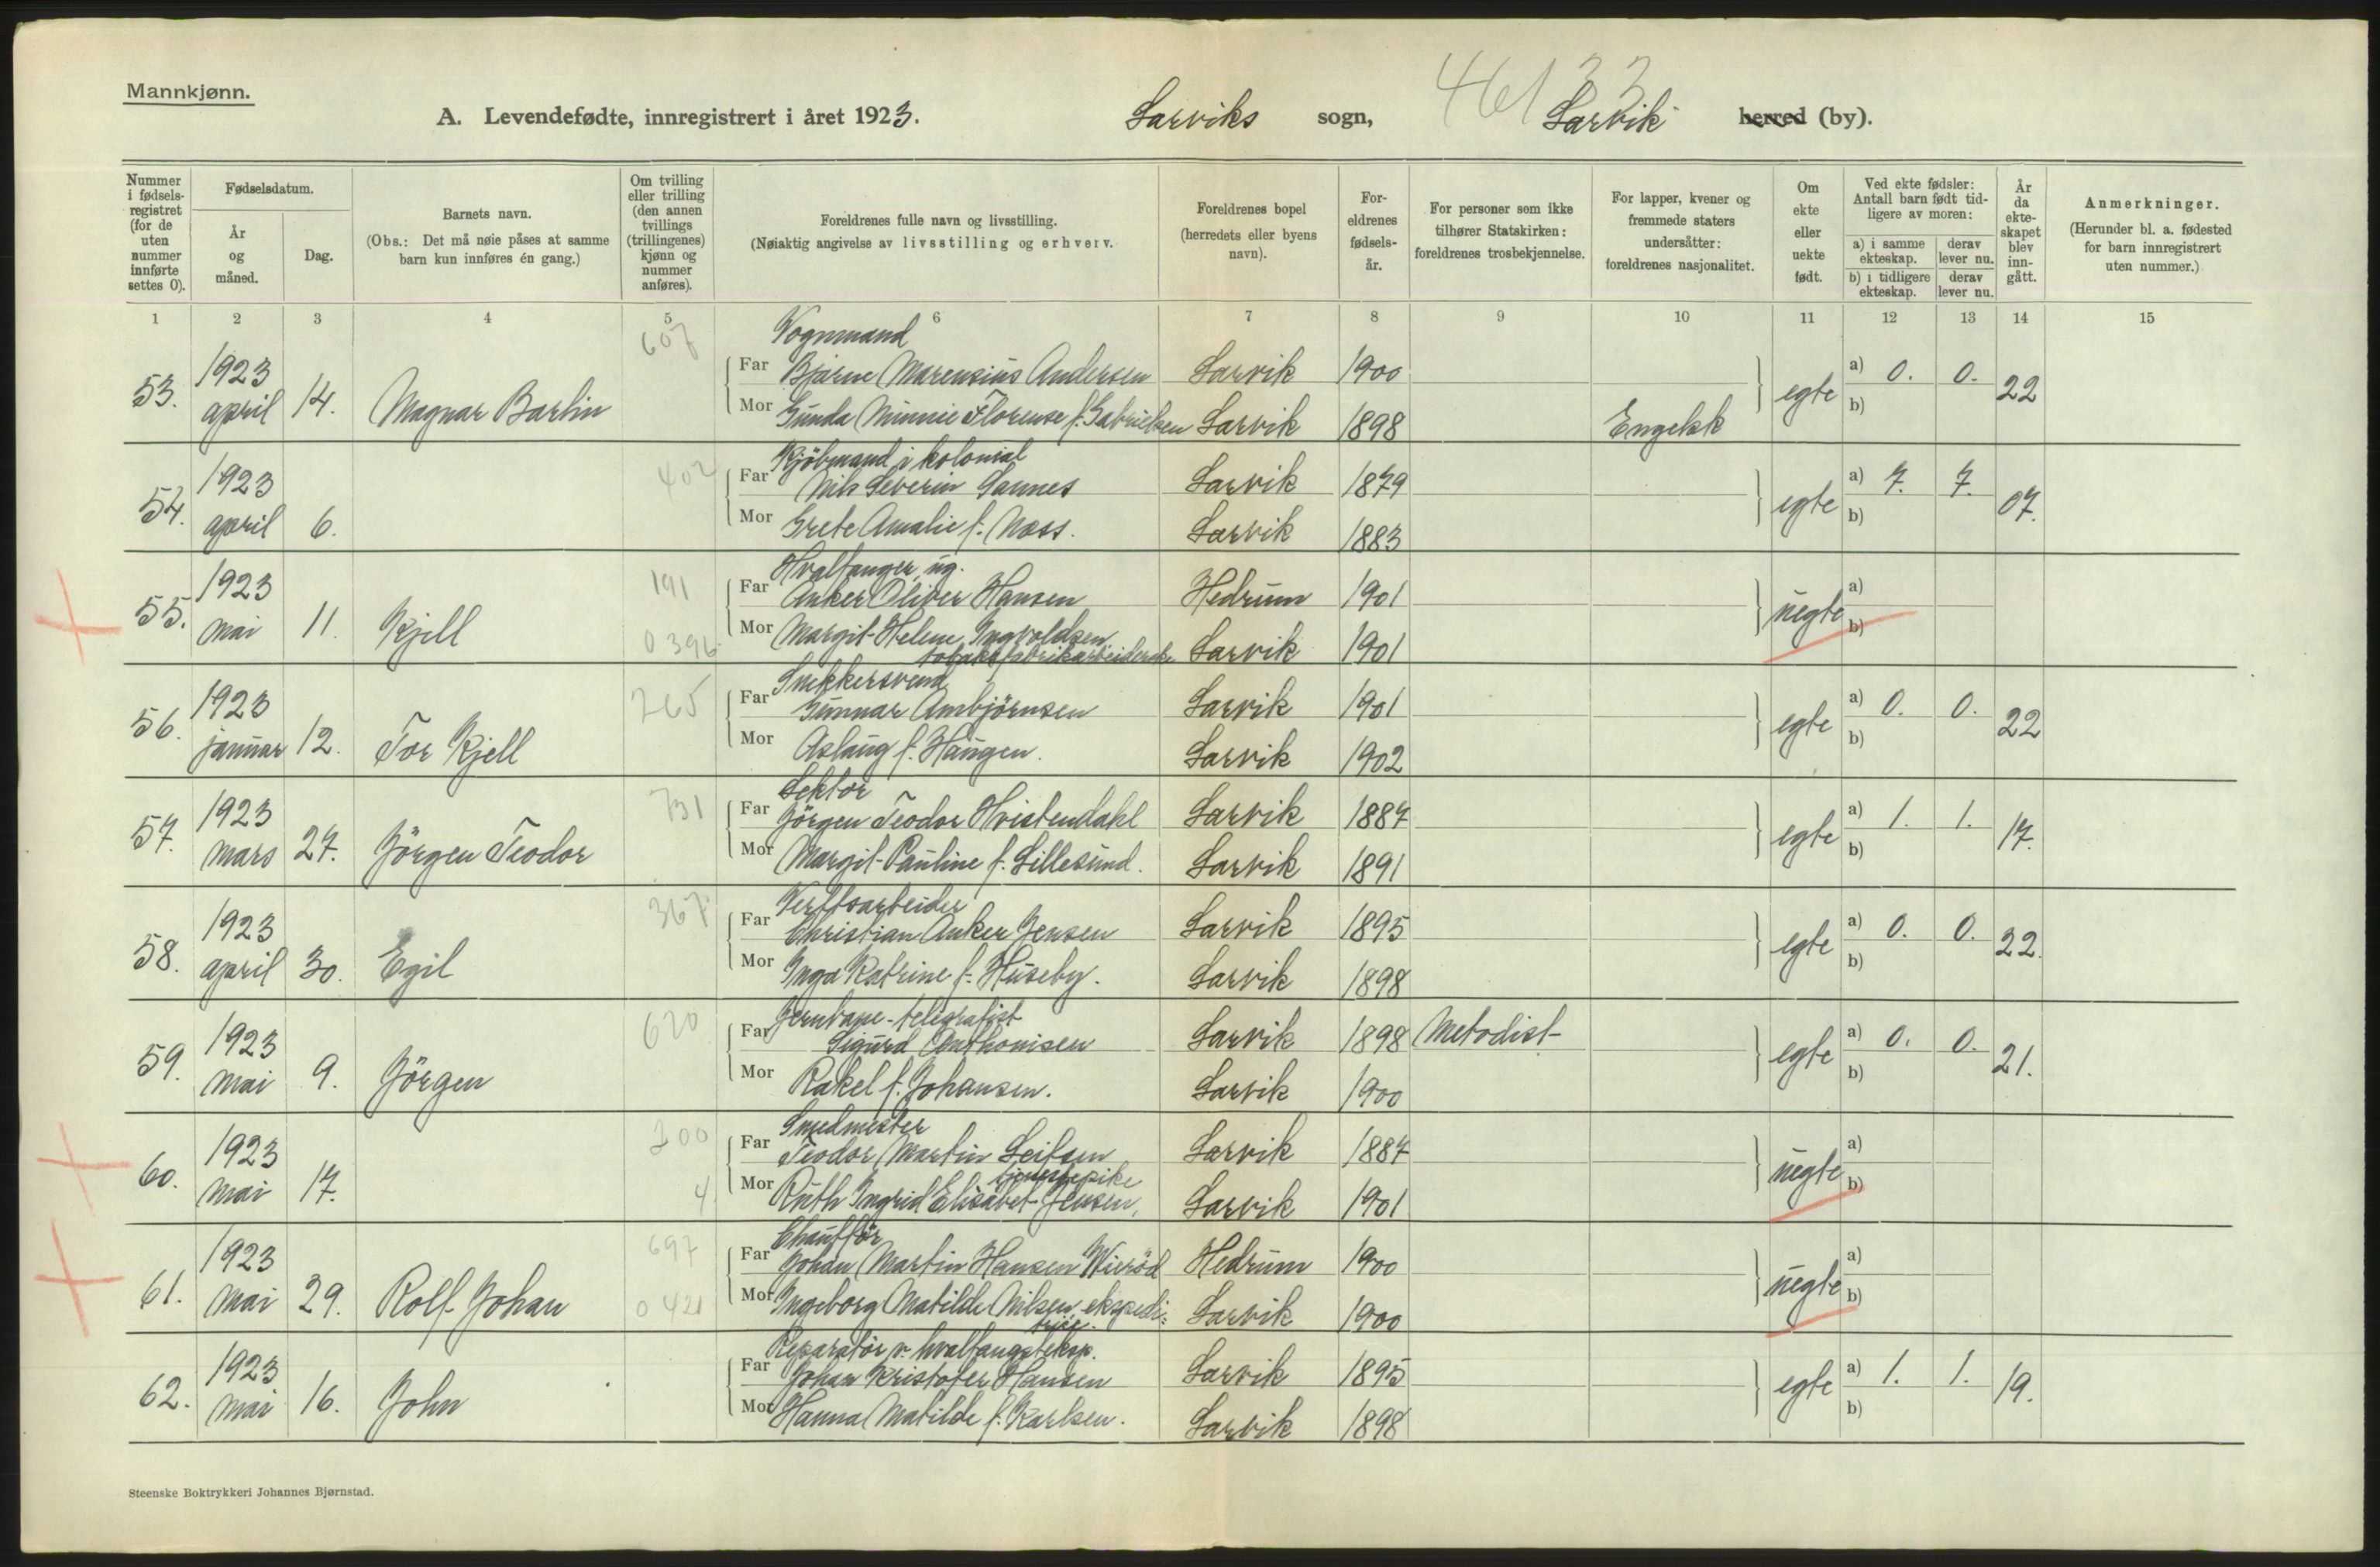 Mannkjønn.
4613 3
A. Levendefødte, innregistrert i året 1923. Larviks sogn, Larvik herred (by).
Nummer i fødsels-registret (for de uten nummer innførte settes 0).
Fødselsdatum.
År og måned.
Dag.
Barnets navn.
(Obs.: Det må nøie påses at samme barn kun innføres én gang.)
Om tvilling eller trilling (den annen tvillings (trillingenes) kjønn og nummer anføres).
Foreldrenes fulle navn og livsstilling.
(Nøiaktig angivelse av livsstilling og erhverv.
Foreldrenes bopel (herredets eller byens navn).
For-eldrenes fødsels-år.
For personer som ikke tilhører Statskirken: foreldrenes trosbekjennelse.
For lapper, kvener og fremmede staters undersåtter: foreldrenes nasjonalitet.
Om ekte eller uekte født.
Ved ekte fødsler: Antall barn født tid-ligere av moren:
a) i samme ekteskap. derav lever nu.
b) i tidligere ekteskap. derav lever nu.
År da ekte-skapet blev inn-gått.
Anmerkninger.
(Herunder bl. a. fødested for barn innregistrert uten nummer.)
1 2 3 4 5 6 7 8 9 10 11 12 13 14 15
607 Vognmand
53. 1923 april 14. Magnar Barlin
Far Bjarne Marensius Andersen Larvik 1900 egte a) 0. 0. 22
Mor Gunda Minnie Florense f. Gabrielsen Larvik 1898 Engelsk b)
402 Kjöbmand i kolonial
54. 1923 april 6.
Far Nils Severin Sannes Larvik 1879 egte a) 7. 7. 07.
Mor Grete Amalie f. Næss. Larvik 1883 b)
191 Hvalfanger, ug.
55. 1923 mai 11. Kjell
Far Anker Oliver Hansen Hedrum 1901 uegte a)
0 396 Mor Margit Helene Ingvoldsen Larvik 1901 b)
tobaksfabrikarbeiderske
265 Snekkersvend
56. 1923 januar 12. Tor Kjell
Far Gunnar Ambjörnsen Larvik 1901 egte a) 0. 0. 22
Mor Aslaug f. Haugen. Larvik 1902 b)
731 Lektor
57. 1923 mars 27. Jörgen Teodor
Far Jörgen Teodor Hvistendahl Larvik 1887 egte a) 1. 1. 17.
Mor Margit Pauline f. Lillesund. Larvik 1891 b)
367 Verftsarbeider
58. 1923 april 30. Egil
Far Christian Anker Jensen Larvik 1895 egte a) 0. 0. 22.
Mor Inga Katrine f. Huseby. Larvik 1898 b)
620 Jernbane-telegrafist
59. 1923 mai 9. Jörgen
Far Sigurd Anthonisen Larvik 1898 Metodist egte a) 0. 0. 21.
Mor Rakel f. Johansen. Larvik 1900 b)
200 Smedmester
60. 1923 mai 17.
Far Teodor Martin Leifsen Larvik 1887 uegte a)
tjenestepike
4 Mor Ruth Ingrid Elisabet Jensen, Larvik 1901 b)
697 Chauffør
61. 1923 mai 29. Rolf Johan
Far Johan Martin Hansen Wierød Hedrum 1900 uegte a)
0 421 Mor Ingeborg Matilde Nilsen, ekspedi- Larvik 1900 b)
trice.
Reparatør v. hvalfangsteksp.
62. 1923 mai 16. John
Far Johan Kristofer Hansen Larvik 1895 egte a) 1. 1. 19.
Mor Hanna Matilde f. Karlsen. Larvik 1898 b)
Steenske Boktrykkeri Johannes Bjørnstad.